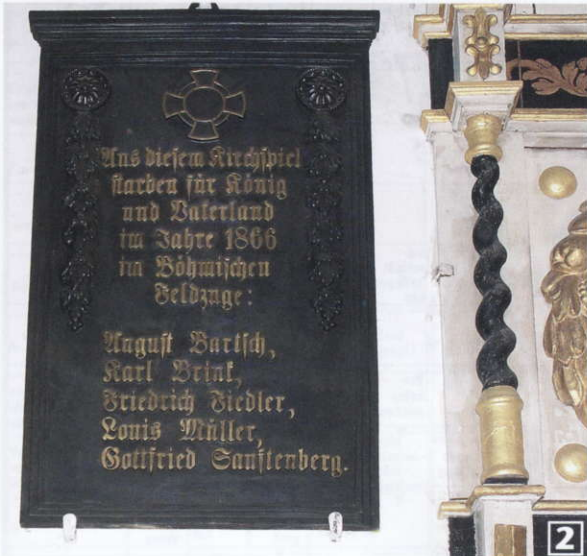 Aus diesem Kirchspiel
starben für König
und Vaterland
im Jahre 1866
im Böhmischen
Feldzuge:
August Bartsch,
Karl Brink,
Friedrich Fiedler,
Louis Müller,
Gottfried Sanftenberg.
2